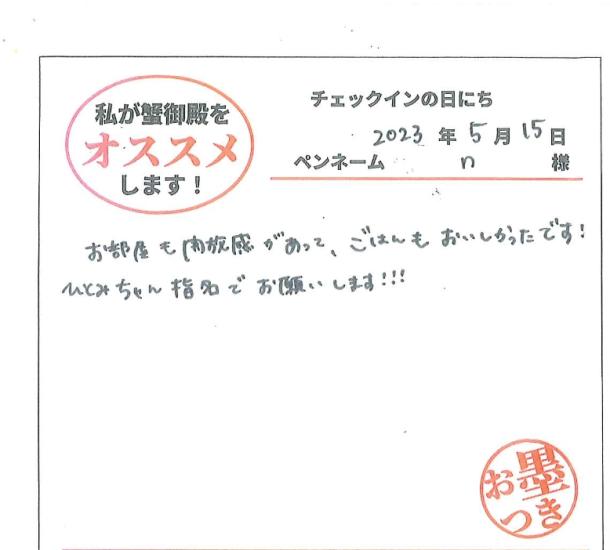 私が蟹御殿を
オススメ
します!
チェックインの日にち
2023 年 5 月 15 日
ペンネーム n 様
お部屋も開放感があって、ごはんもおいしかったです!
ひとみちゃん指名でお願いします!!!
お墨
つき